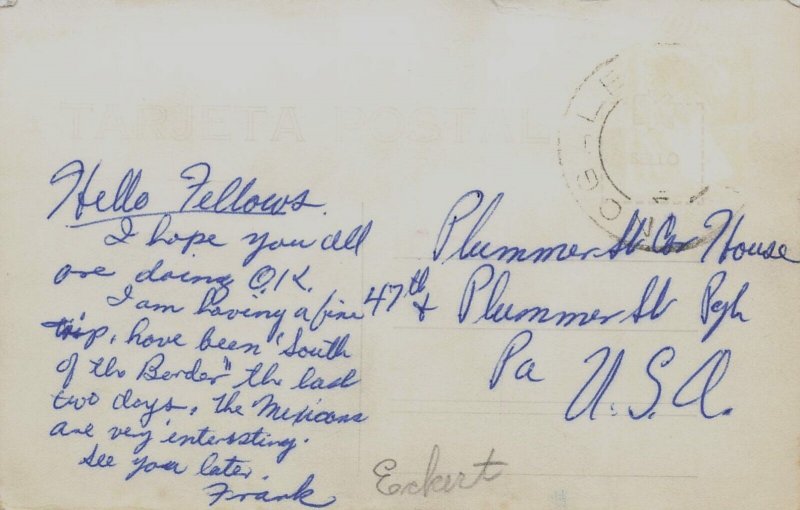 TARJETA POSTAL
Hello Fellows.
I hope you all
are doing O.K.
I am having a fine
trip, have been "South
of the Border" the last
two days, the Mexicans
are very interesting.
See you later.
Frank
Plummer St Car House
47th & Plummer St Pgh
Pa
U.S.A.
Eckert